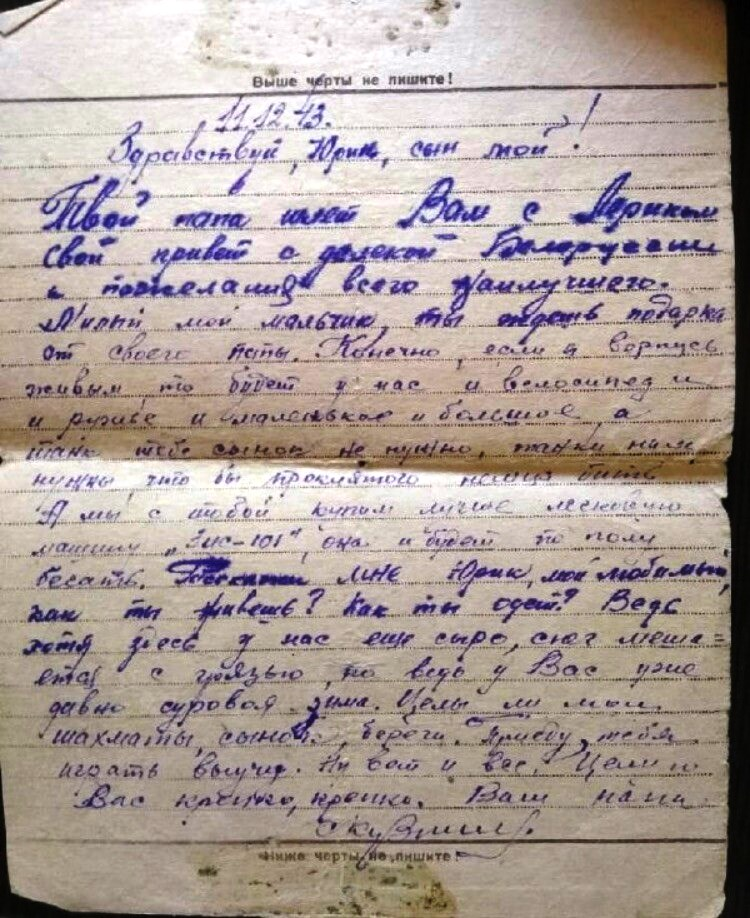 Выше черты не пишите!
11.12.43.
Здравствуй, Юрик, сын мой!
Твой папа шлет Вам с Лериком
свой привет с далекой Белоруссии
и пожелания всего наилучшего.
Милый мой мальчик, ты ждешь подарка
от своего папы. Конечно, если я вернусь
живым, то будет у нас и велосипед и
и ружье и маленькое и большое, а
танк тебе сынок не нужно, танки нам
нужны, что бы проклятого немца бить.
А мы с тобой купим лучше легковую
машину „Зис-101", она и будет по полу
бегать. мне Юрик, мой любимый,
как ты живешь? Как ты одет? Ведь
хотя здесь у нас еще сыро, снег меша=
ется с грязью, но ведь у Вас уже
давно суровая зима. Целы ли мои
шахматы, сынок, береги. Приеду, тебя
играть выучу. Ну вот и все. Целую
Вас крепко, крепко. Ваш папа
Ниже черты не пишите!